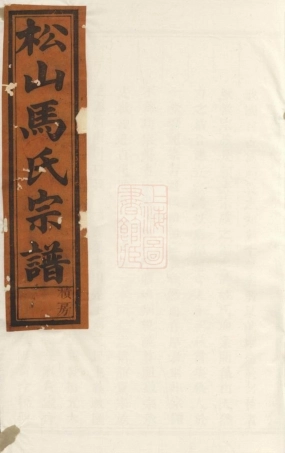 松山馬氏宗譜
房
上海圖書館藏